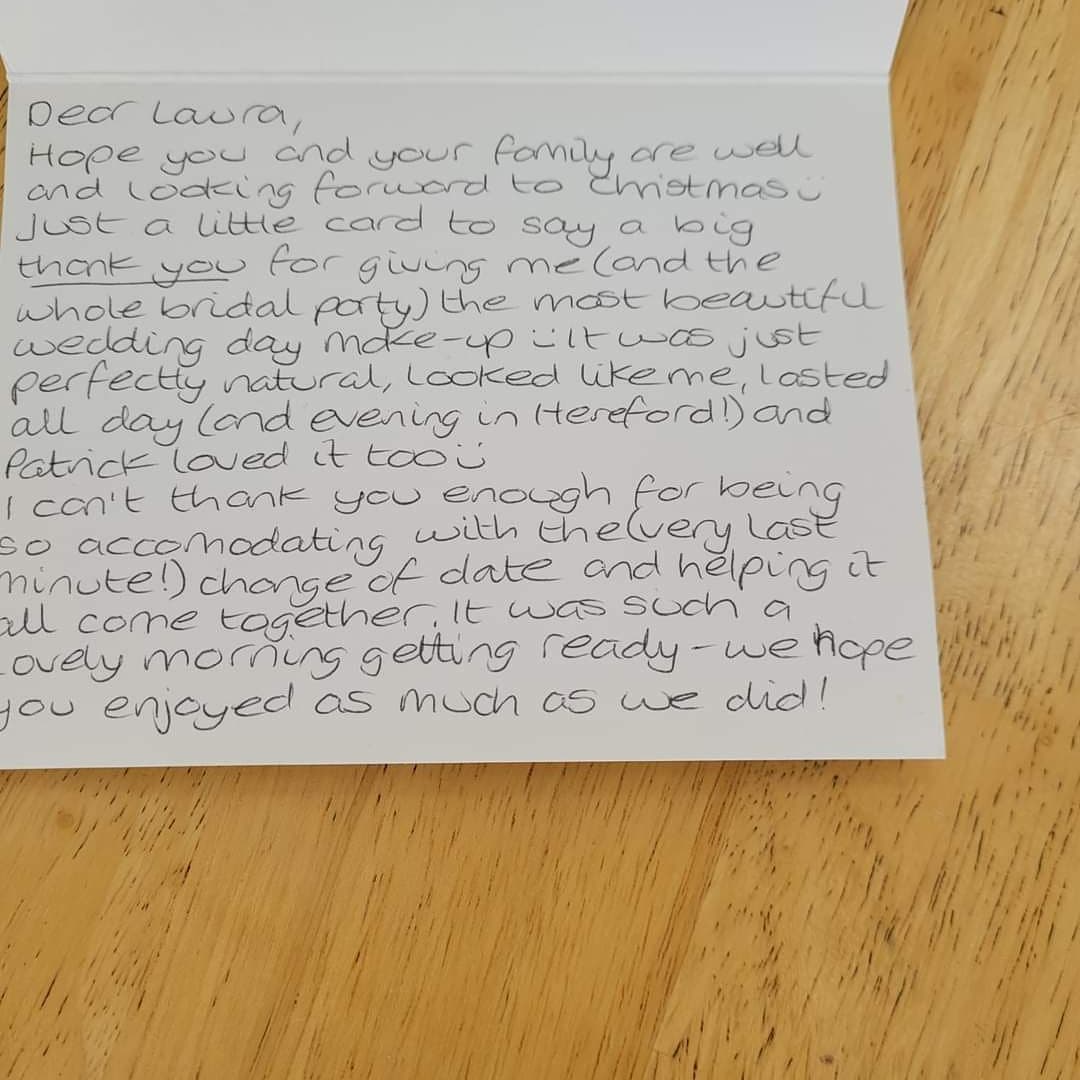 Dear Laura,
Hope you and your family are well
and looking forward to Christmas ü
Just a little card to say a big
thank you for giving me (and the
whole bridal party) the most beautiful
wedding day make-up ü It was just
perfectly natural, looked like me, lasted
all day (and evening in Hereford!) and
Patrick loved it too ü
I can't thank you enough for being
so accomodating with the (very last
minute!) change of date and helping it
all come together. It was such a
lovely morning getting ready - we hope
you enjoyed as much as we did!